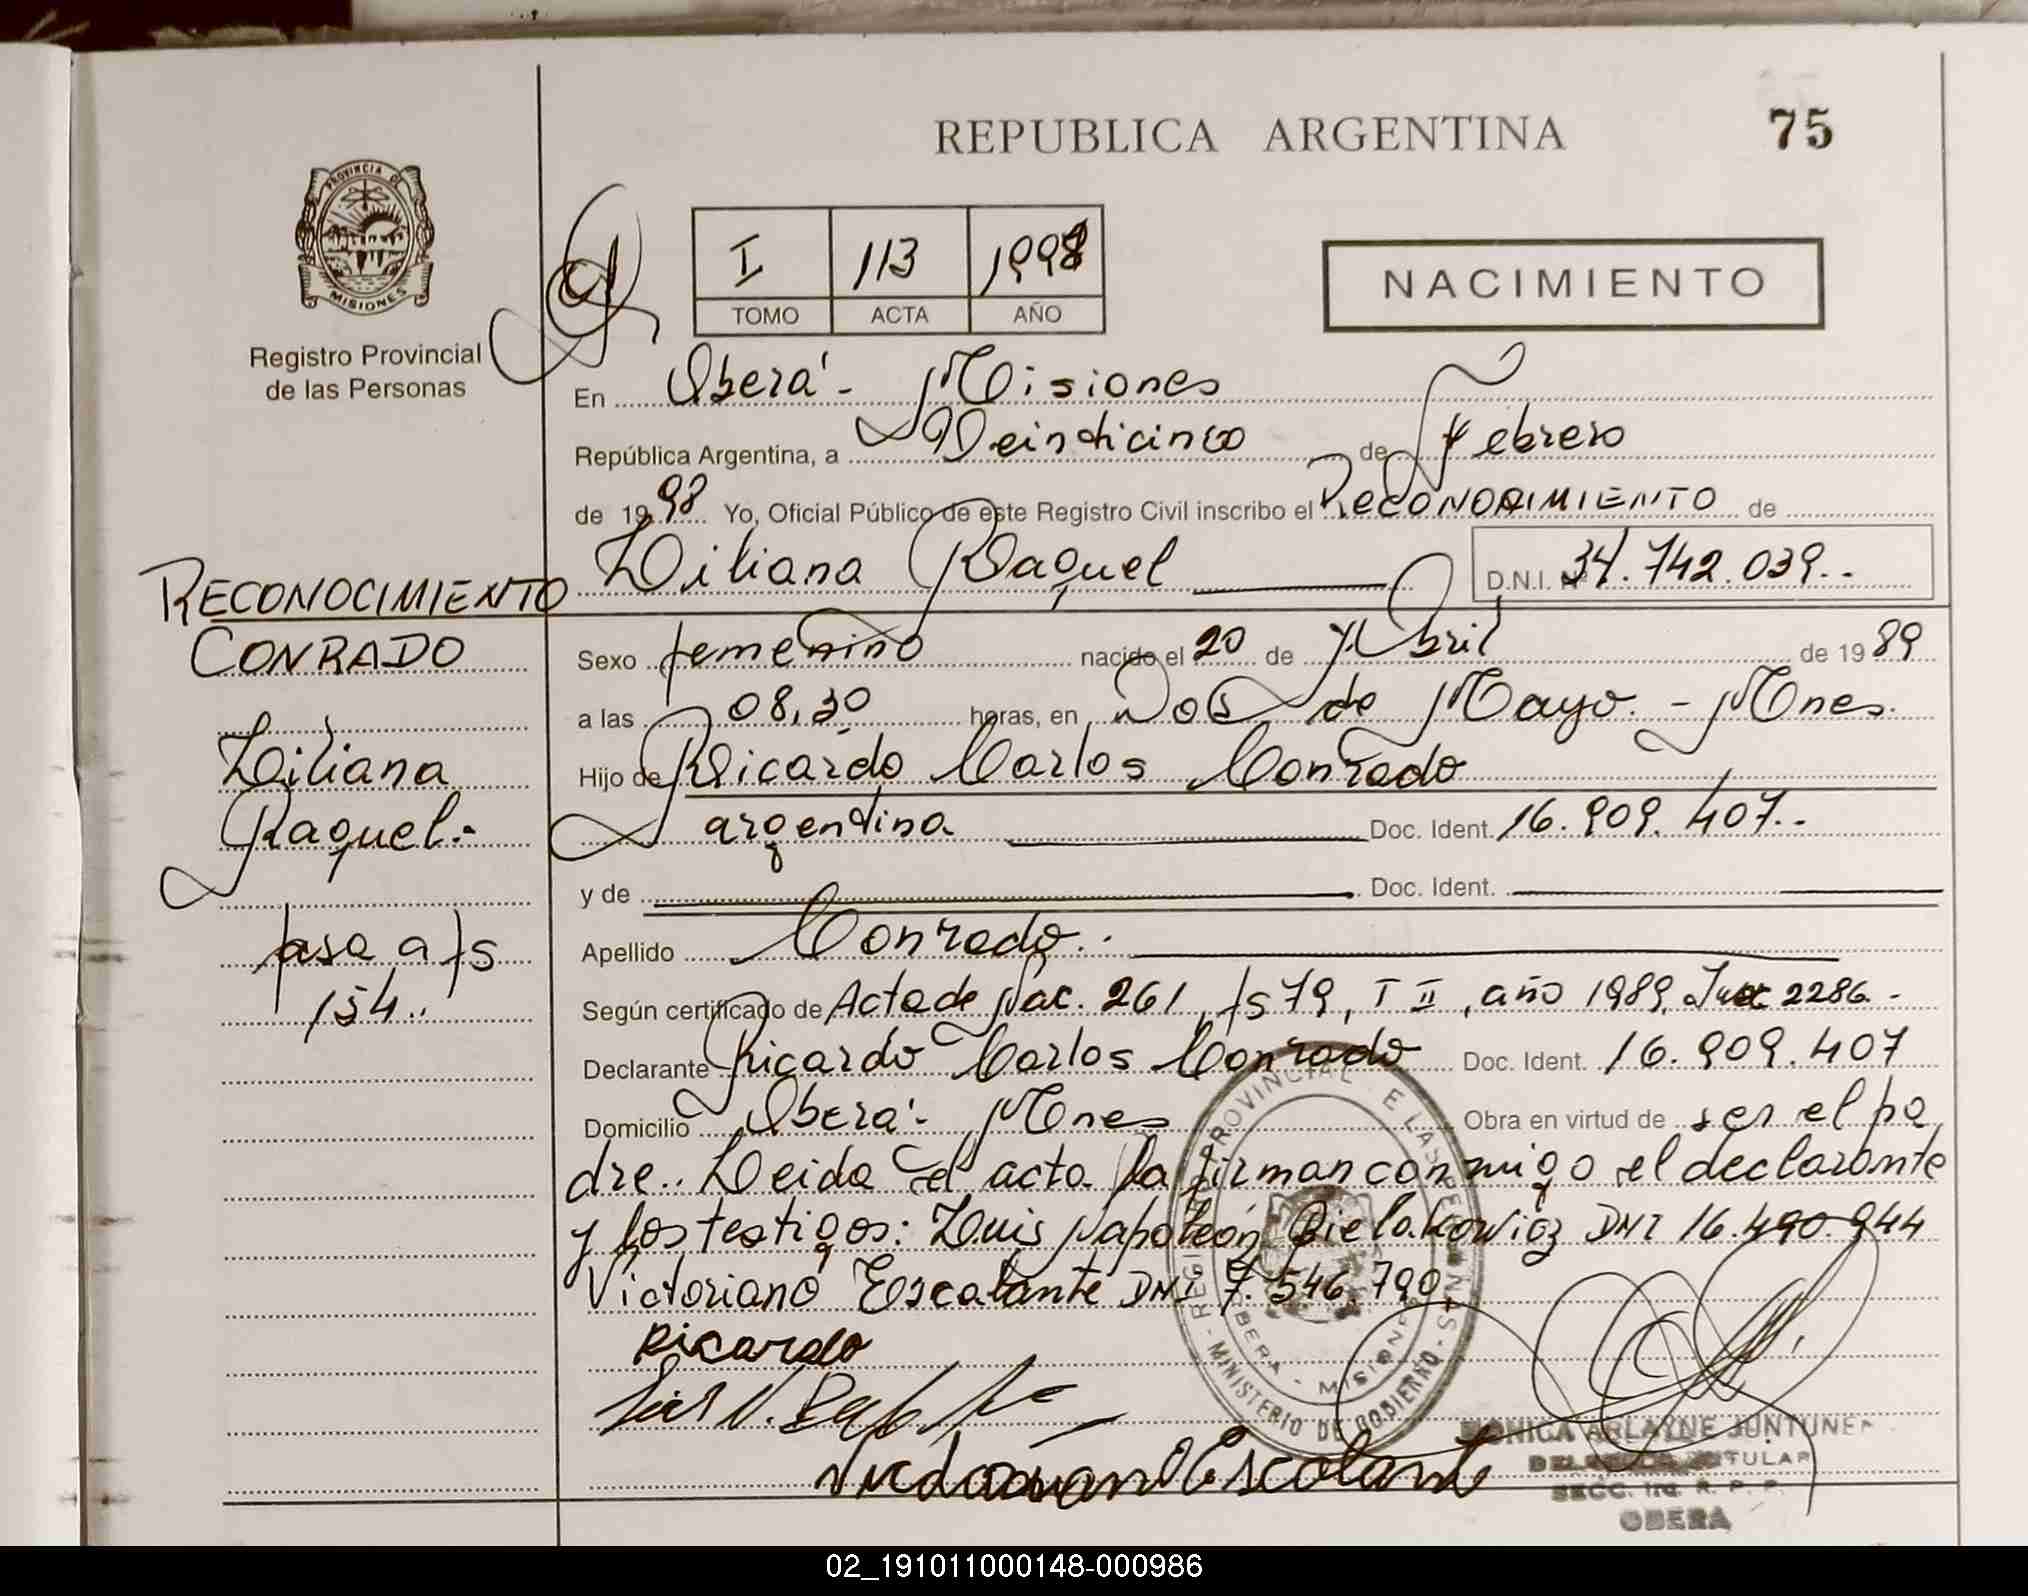 REPUBLICA ARGENTINA
75
PROVINCIA DE
MISIONES
Registro Provincial
de las Personas
I 113 1998
TOMO ACTA AÑO
NACIMIENTO
En Oberá - Misiones
República Argentina, a Veinticinco de Febrero
de 1998 Yo, Oficial Público de este Registro Civil inscribo el RECONOCIMIENTO de
Liliana Raquel D.N.I. Nº 34.742.039..
RECONOCIMIENTO
CONRADO
Liliana
Raquel.-
pasa a fs
154..
Sexo femenino nacido el 20 de Abril de 1989
a las 08,30 horas, en Dos de Mayo. - Mnes.
Hijo de Ricardo Carlos Conrado
argentina Doc. Ident. 16.909.407..
y de Doc. Ident.
Apellido Conrado..
Según certificado de Acta de Nac. 261, fs 79, T II, año 1989, 2286.-
Declarante Ricardo Carlos Conrado Doc. Ident. 16.909.407
Domicilio Oberá - Mnes Obra en virtud de ser el pa
dre.. Leida el acta la firman conmigo el declarante
y los testigos: Luis Napoleón DNI 16.490.944
Victoriano Escalante DNI 7.546.790
Ricardo
Escalante
REGI PROVINCIAL E LAS PERSONAS
MINISTERIO DE GOBIERNO
OBERA - MISIONES
MONICA ARLAYNE JUNTUNEN
TITULAR
SECC. 1ra. R. P. P.
OBERA
02_191011000148-000986